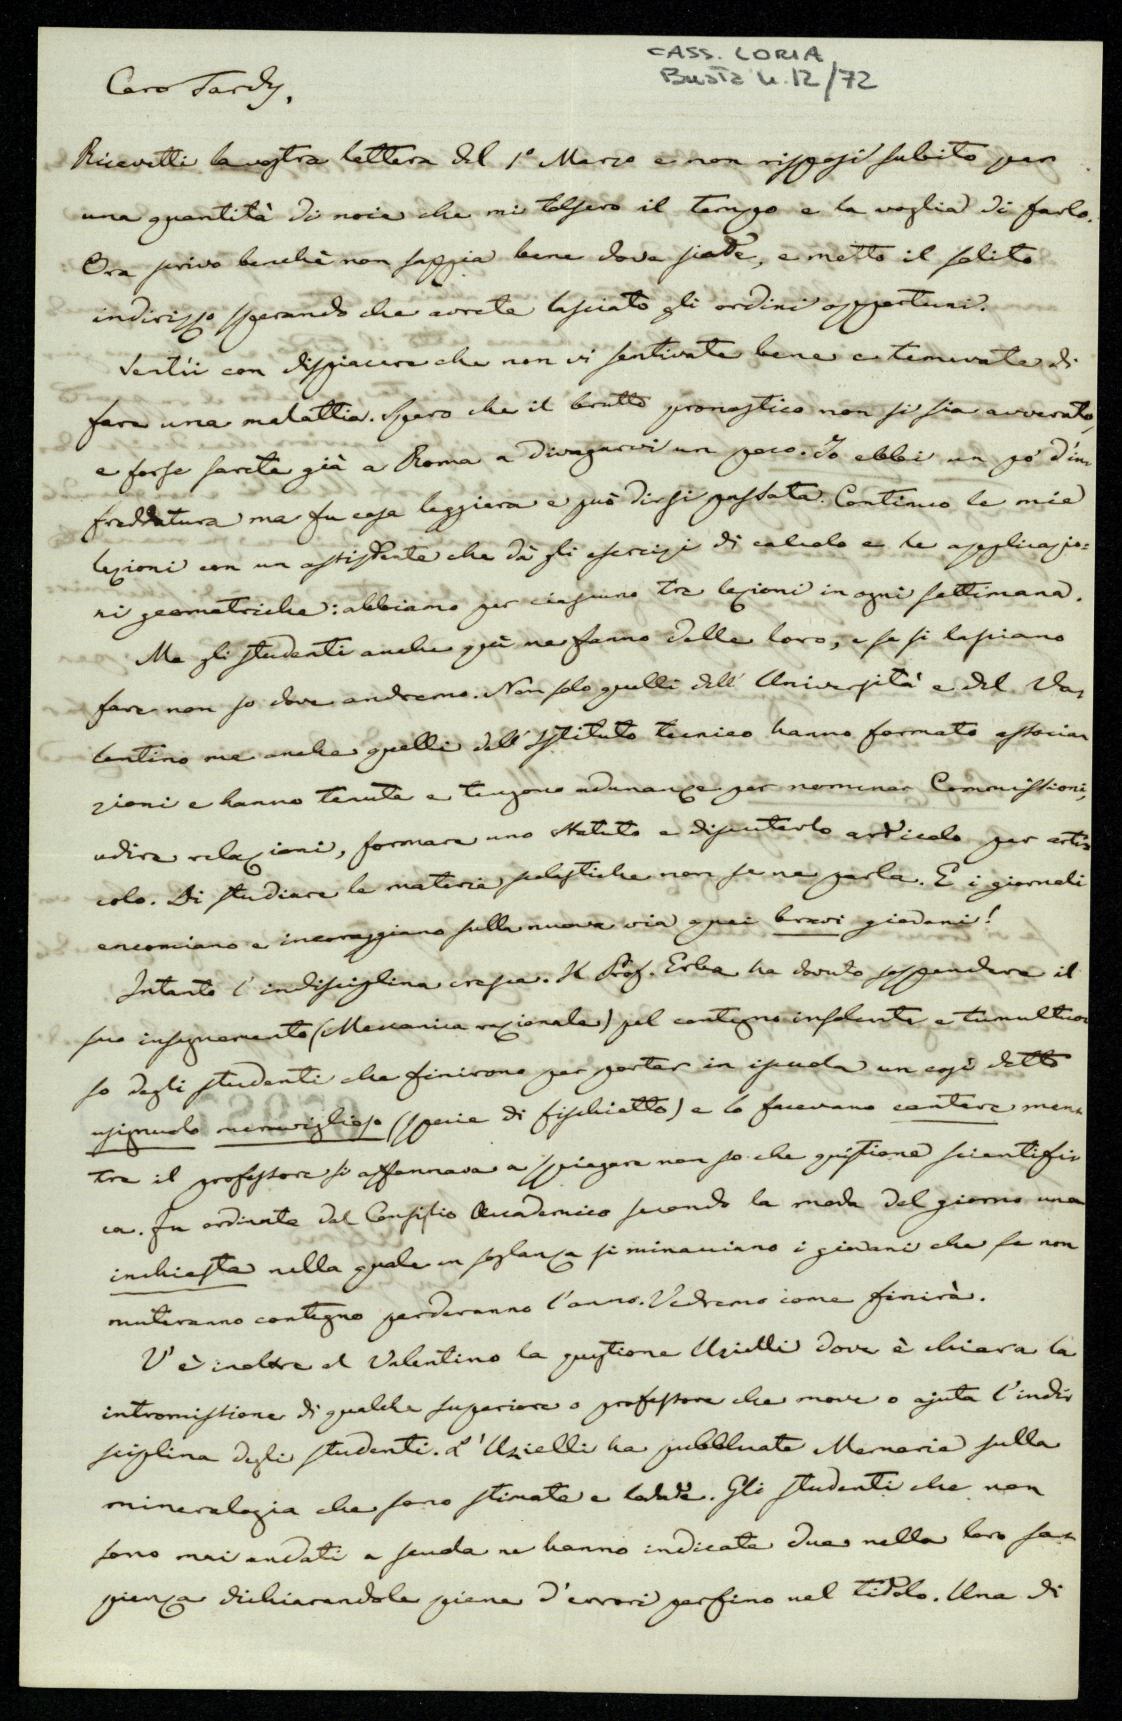 CASS. LORIA
Busta n. 12/72
Caro Tardy,
Ricevetti la vostra lettera del 1° Marzo e non risposi subito per
una quantità di noie che mi tolsero il tempo e la voglia di farlo.
Ora scrivo benchè non sappia bene dove siate, e metto il solito
indirizzo sperando che avrete lasciato gli ordini opportuni.
Sentii con dispiacere che non vi sentivate bene e temevate di
fare una malattia. Spero che il brutto pronostico non si sia avverato,
e forse sarete già a Roma a divagarvi un poco. Io ebbi un pò d'in
freddatura ma fu cosa leggiera e può dirsi passata. Continuo le mie
lezioni con un assistente che dà gli esercizi di calcolo e le applicazio=
ni geometriche: abbiamo per ciascuno tre lezioni in ogni settimana.
Ma gli studenti anche quì ne fanno delle loro, e se si lasciano
fare non so dove andremo. Non solo quelli dell' Università e del Va-
lentino ma anche quelli dell'Istituto tecnico hanno formato associa-
zioni e hanno tenute e tengono adunanze per nominar Commissioni,
udire relazioni, formare uno statuto e discuterlo articolo per arti-
colo. Di studiare le materie scolastiche non se ne parla. E i giornali
encomiano e incoraggiano sulla nuova via quei bravi giovani!
Intanto l'indisciplina cresce. Il Prof. Erba ha dovuto sospendere il
suo insegnamento (Meccanica razionale) pel contegno insolente e tumultuo
so degli studenti che finirono per portar in iscuola un così detto
usignuolo meraviglioso (specie di fischietto) e lo facevano cantare men-
tre il professore si affannava a spiegare non so che quistione scientifi-
ca. Fu ordinata dal Consiglio Accademico secondo la moda del giorno una
inchiesta nella quale in sostanza si minacciano i giovani che se non
muteranno contegno perderanno l'anno. Vedremo come finirà.
V'è inoltre al Valentino la quistione Uzielli dove è chiara la
intromissione di qualche superiore o professore che move o ajuta l'indi-
sciplina degli studenti. L'Uzielli ha pubblicate Memorie sulla
mineralogia che sono stimate e lodate. Gli studenti che non
sono mai andati a scuola ne hanno indicate due nella loro sa-
pienza dichiarandole piene d'errori perfino nel titolo. Una di